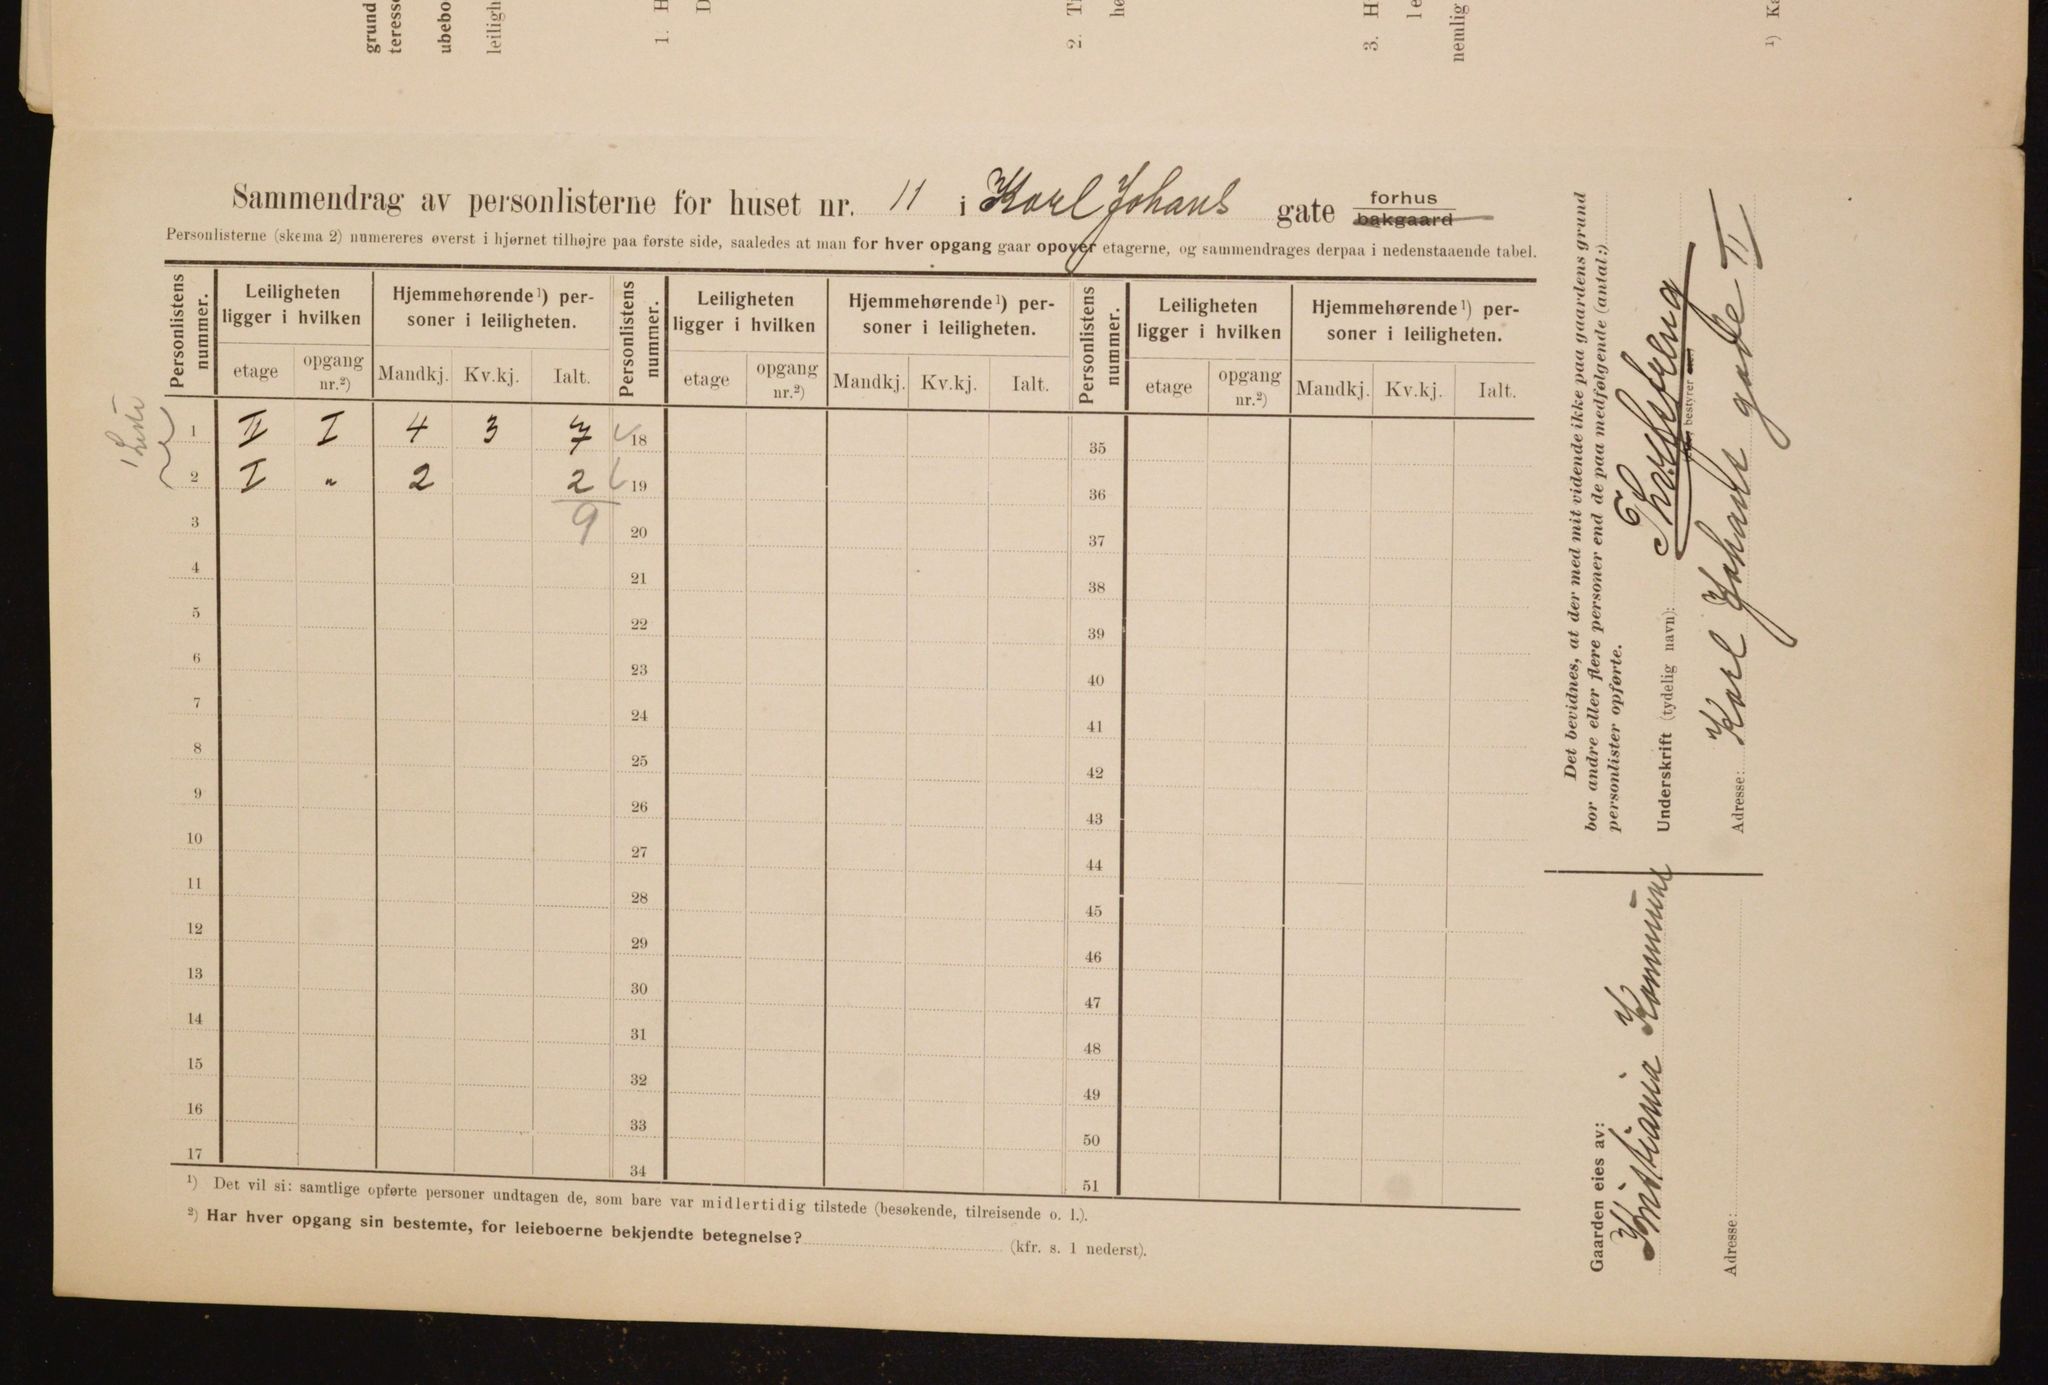 grund
teresse
ubebo
leiligh
1. H
D
2. T
he
3. H
le
nemlig
¹) Ka
Sammendrag av personlisterne for huset nr. 11 i Karl Johans gate forhus
bakgaard
Personlisterne (skema 2) numereres øverst i hjørnet tilhøjre paa første side, saaledes at man for hver opgang gaar opover etagerne, og sammendrages derpaa i nedenstaaende tabel.
Personlistens nummer. Leiligheten ligger i hvilken Hjemmehørende ¹) personer i leiligheten. Personlistens nummer. Leiligheten ligger i hvilken Hjemmehørende ¹) personer i leiligheten. Personlistens nummer. Leiligheten ligger i hvilken Hjemmehørende ¹) personer i leiligheten.
etage opgang nr.²) Mandkj. Kv.kj. Ialt. etage opgang nr.²) Mandkj. Kv.kj. Ialt. etage opgang nr.²) Mandkj. Kv.kj. Ialt.
1 II I 4 3 7 18 35
2 I „ 2 2 19 36
3 9 20 37
4 21 38
5 22 39
6 23 40
7 24 41
8 25 42
9 26 43
10 27 44
11 28 45
12 29 46
13 30 47
14 31 48
15 32 49
16 33 50
17 34 51
¹) Det vil si: samtlige opførte personer undtagen de, som bare var midlertidig tilstede (besøkende, tilreisende o. l.).
²) Har hver opgang sin bestemte, for leieboerne bekjendte betegnelse? (kfr. s. 1 nederst).
Det bevidnes, at der med mit vidende ikke paa gaardens grund
bor andre eller flere personer end de paa medfølgende (antal:)
personlister opførte.
Underskrift (tydelig navn):
bestyrer
Adresse: Karl Johans gade 11
Gaarden eies av:
Kristiania Kommune
Adresse: